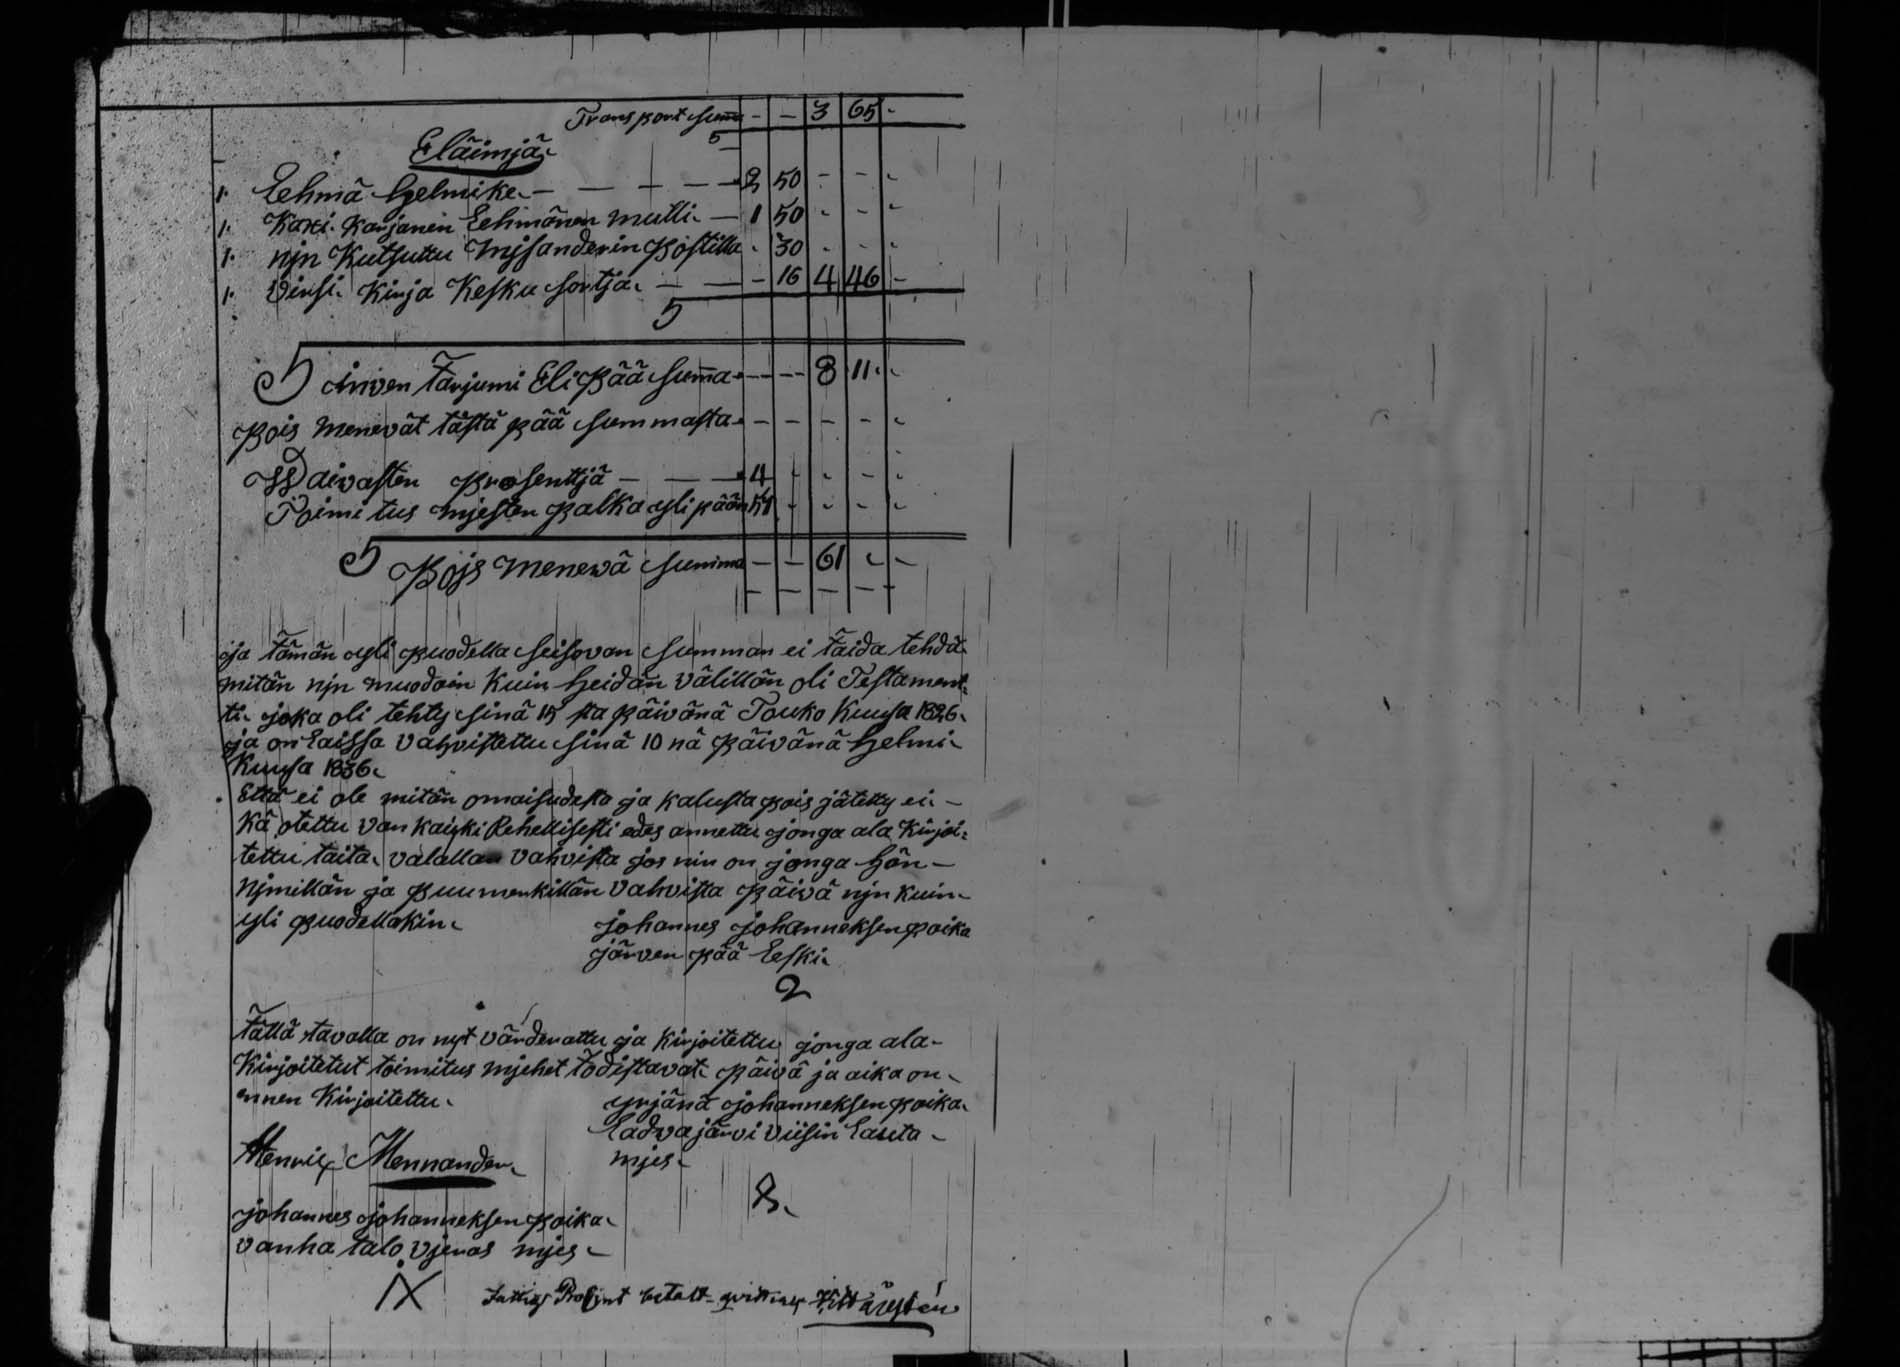 Transport Summa - - 3 65 -
Eläimjä
1. Lehmä Helmike - - - - 2 50 - - -
1. Kaxi Karjanen Lehmänen mulli - 1 50 - - -
1. njn Kutsuttu Mjsanderin Postilla - 30 - - -
1. Virsi Kirja Kesku sortja - - - 16 4 46 -
Inven Tarjumi Eli Pää Summa - - 8 11 -
Pois menevät tästä pää summasta - - - - -
Waivasten Prosenttjä - - - 4 - - - -
Toimitus mjesten palka yli pään - - - -
Pojs menewä Summa - - 61 - -
- - - - -
ja tämän yli puolella seisovan summan ei taida tehdä
mitän njn muodoin Kuin heidän välillän oli Testament:
ti joka oli tehty sinä 15 sta päivänä Touko Kuusa 1826
ja on Laissa vahvistettu sinä 10 nä päivänä Helmi
Kuusa 1836
Että ei ole mitän omaisudesta ja kalusta pois jätetty ei-
kä otettu van kaicki Rehellisesti edes annettu jonga ala Kirjoi:
tettu taita valallan vahvista jos nin on jonga hän-
njmillän ja puumerkillän vahvista päivä njn kuin
yli puolellakin
johannes johanneksen poika
järven pää Leski
Tällä tavalla on nyt värderattu ja Kirjoitettu jonga ala-
Kirjoitetut toimitus mjehet todistavat päivä ja aika on
ennen Kirjoitettu
yrjänä johanneksen poika
Ladvajärvi viisin Lauta-
mjes
Henric Mennander
johannes johanneksen poika
vanha talo vjeras mjes
Fattigs Procent betalt qvitteras